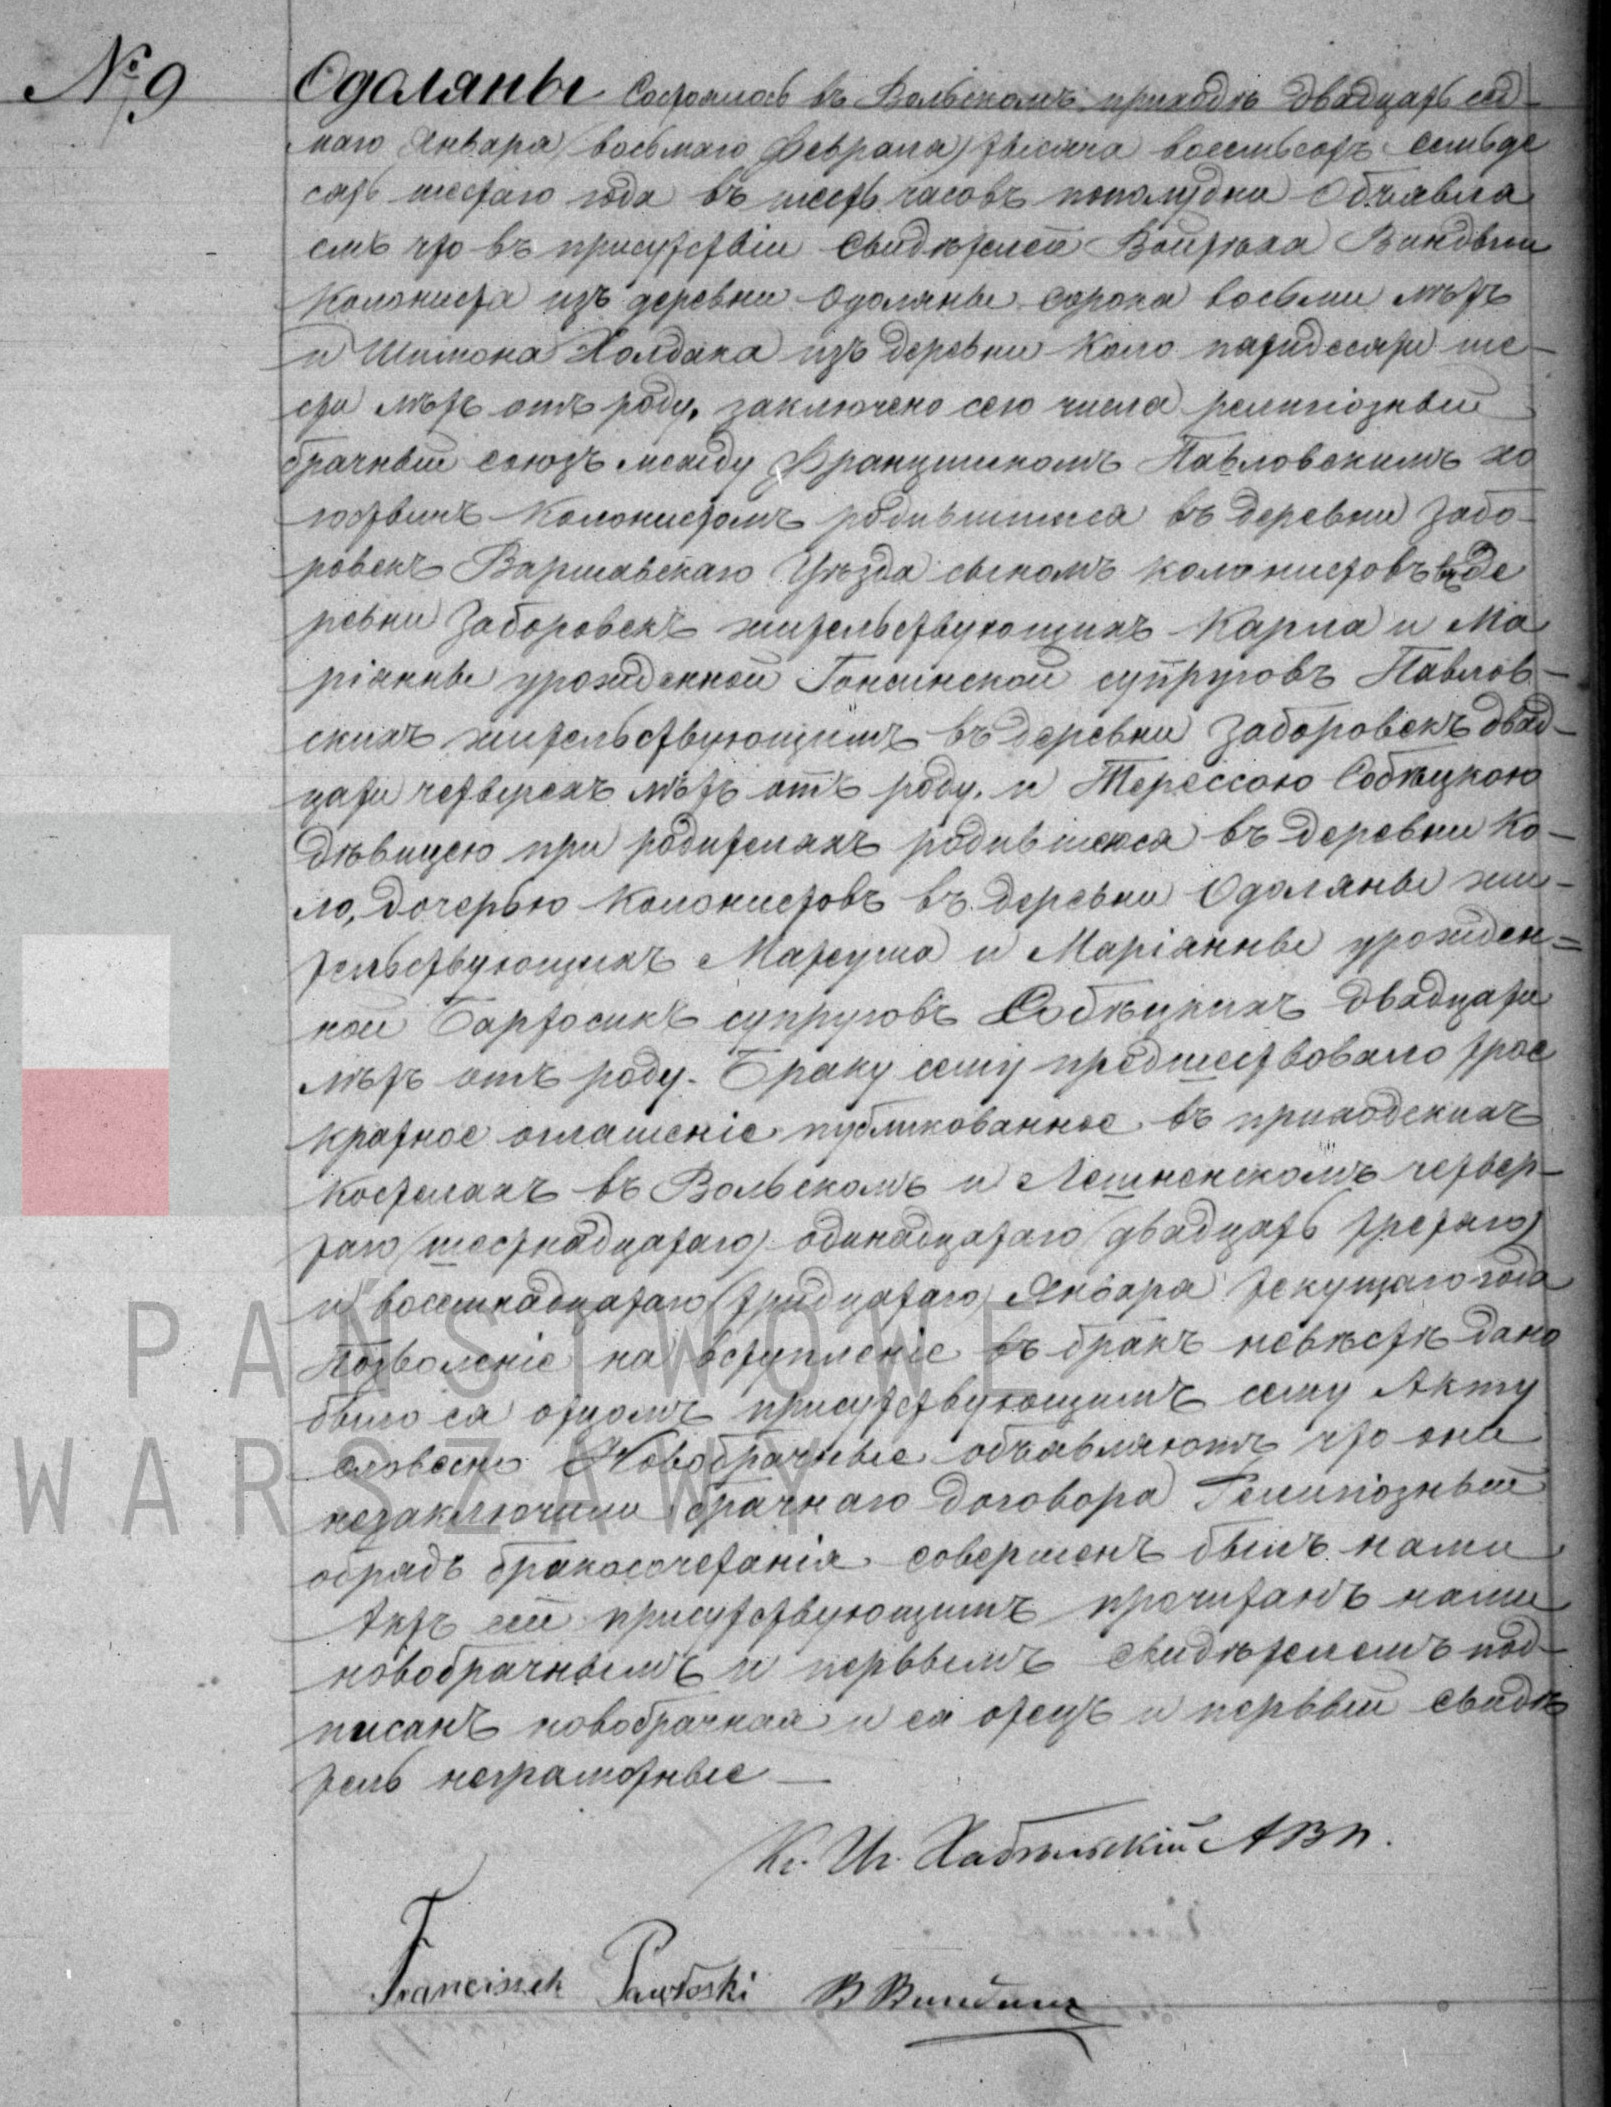 № 9
Одоляны Состоялось въ Вольскомъ приходѣ двадцать седь-
маго Января /восьмаго Февраля/ тысяча восемьсотъ семьде
сять шестаго года въ шесть часовъ пополудни Объявля
емъ что въ присутствіи Свидѣтелей Войтѣха
Колониста изъ деревни Одоляны сорока восьми лѣтъ
и Шимона Холдака изъ деревни Коло пятидесяти ше-
сти лѣтъ отъ роду, заключено сего числа религіозный
брачный союзъ между Францишкомъ Павловскимъ хо
лостымъ Колонистомъ родившимся въ деревни Забо-
ровекъ Варшавскаго Уѣзда сыномъ колонистовъ въ де
ревни Заборовекъ жительствующихъ Карла и Ма
ріанны урожденной супруговъ Павлов-
скихъ жительствующимъ въ деревни Заборовекъ двад-
цати четверехъ лѣтъ отъ роду. и Терессою Собѣцкою
дѣвицею при родителяхъ родившеюся въ деревни Ко-
ло, дочерью Колонистовъ въ деревни Одоляны жи-
тельствующихъ Матеуша и Маріанны урожден=
ной Бартосикъ супруговъ Собѣцкихъ двадцати
лѣтъ отъ роду. Браку сему предшествовало трое
кратное оглашеніе публикованное въ приходскихъ
Костелахъ въ Вольскомъ и Лешненскомъ четвер-
таго /шестнадцатаго/ одинадцатаго /двадцать третаго/
и восемнадцатаго /тридцатаго/ Января текущаго года
Позволеніе на вступленіе въ бракъ невѣстѣ дано
было ея отцомъ присутствующимъ сему Акту
словесно Новобрачные объявляютъ что они
незаключили брачнаго договора Религіозный
обрядъ бракосочетанія совершенъ былъ нами
Актъ сей присутствующимъ прочитанъ нами
новобрачнымъ и первымъ свидѣтелемъ под-
писанъ новобрачная и ея отецъ и первый свидѣ
тель неграмотные —
Кс. Иг. АВП.
Franciszek Pawłoski В
PAŃSTWOWE
WARSZAWY